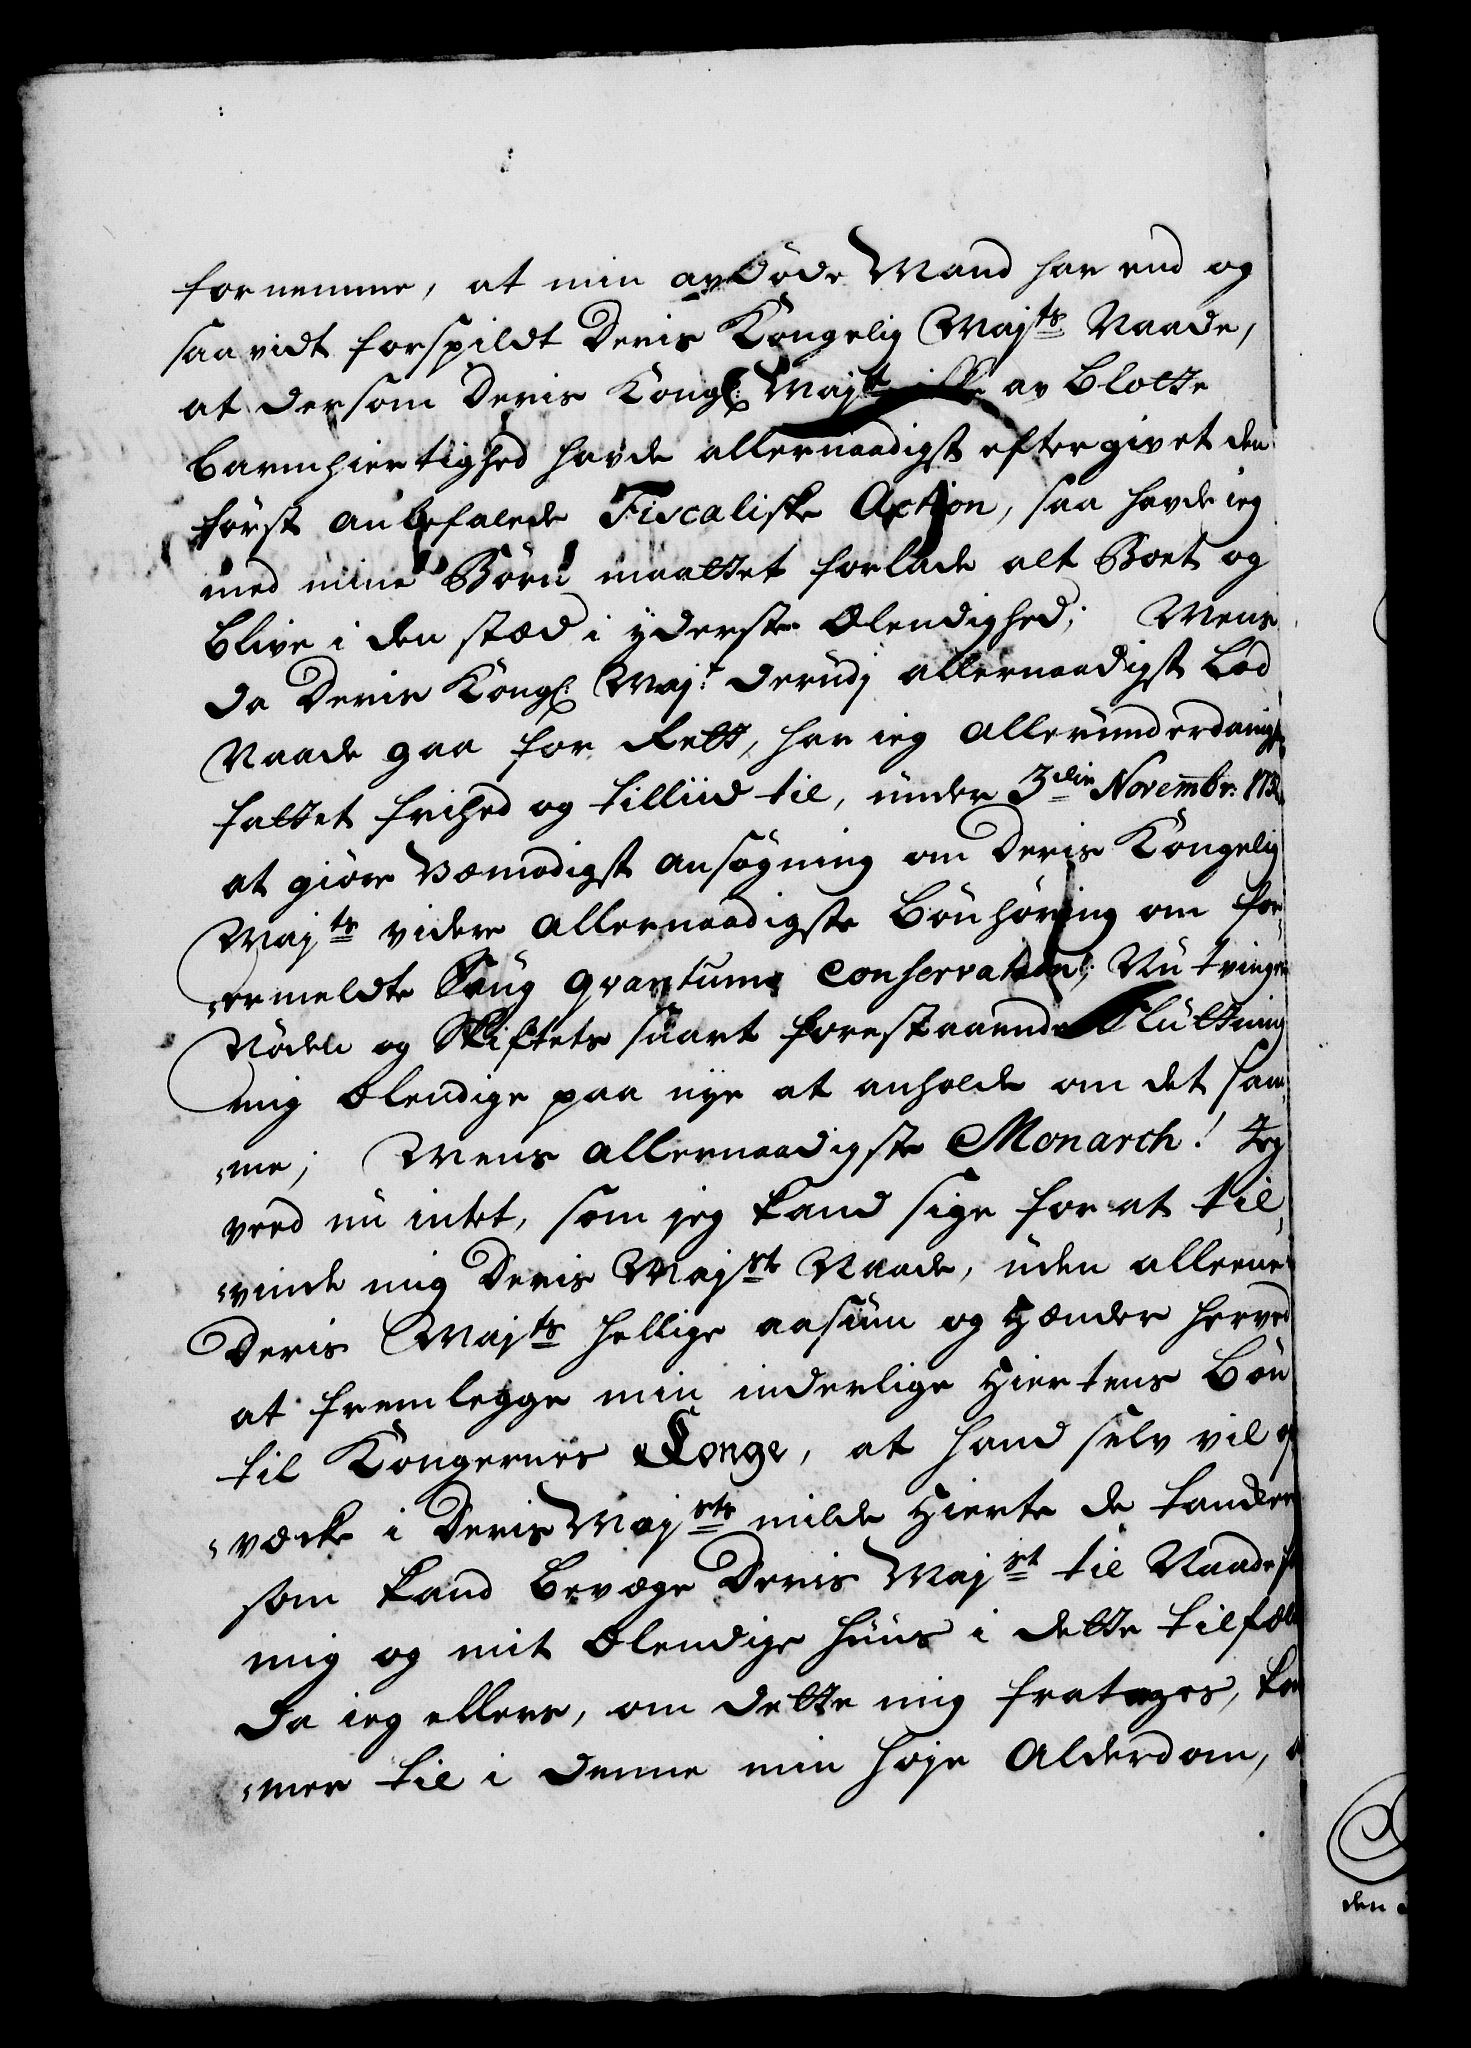 fornemme, at min avdöde Mand har end og
saavidt forspildt Deris Kongelig Majts Naade,
at dersom Deris Kongl: Majt icke av blotte
barmhiertighed havde allernaadigst eftergivet den
först anbefalede Fiscaliske Action, saa havde ieg
med mine Börn maattet forlade alt Boet og
blive i den stæd i yderste Elendighed; Mens
da Deris Kongl: Majt: derudj allernaadigst lod
Naade gaa for Rett, har ieg allerunderdanigst
fattet frihed og tilliid til, under 3die Novembr:
at giöre væmodigst ansögning om Deris Kongelig
Majts videre allernaadigste Bönhöring om for-
-ermeldte Conservation; Nu tvinger
Nöden og Skiftets snart forestaaende Sluttning
mig Elendige paa nye at anholde om det sam-
-me; Mens allernaadigste Monarch! Jeg
veed nu intet, som jeg kand sige for at til-
-vinde mig Deris Majst Naade, uden alleene
Deris Majts hellige aasiun og Hænder herved
at fremlegge min inderlige Hiertens Bön
til Kongernes Konge, at hand selv vil op-
-vecke i Deris Majsts milde Hierte de tancker
som kand bevæge Deris Majst til Naade
mig og mit Elendige huus i dette tilfælde
Da ieg ellers, om dette mig fratages, kom-
-mer til i denne min höje Alderdom,
den